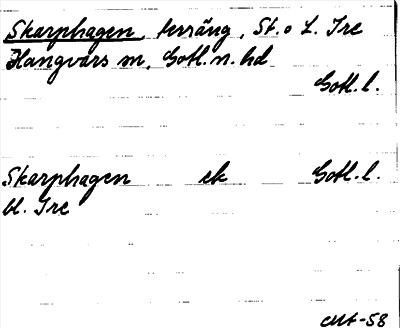 Skarphagen terräng, St. o L. Ire
Hangvars sn, Gotl. n. hd
Gotl. l.
Skarphagen ek Gotl. l.
bl. Ire
-58